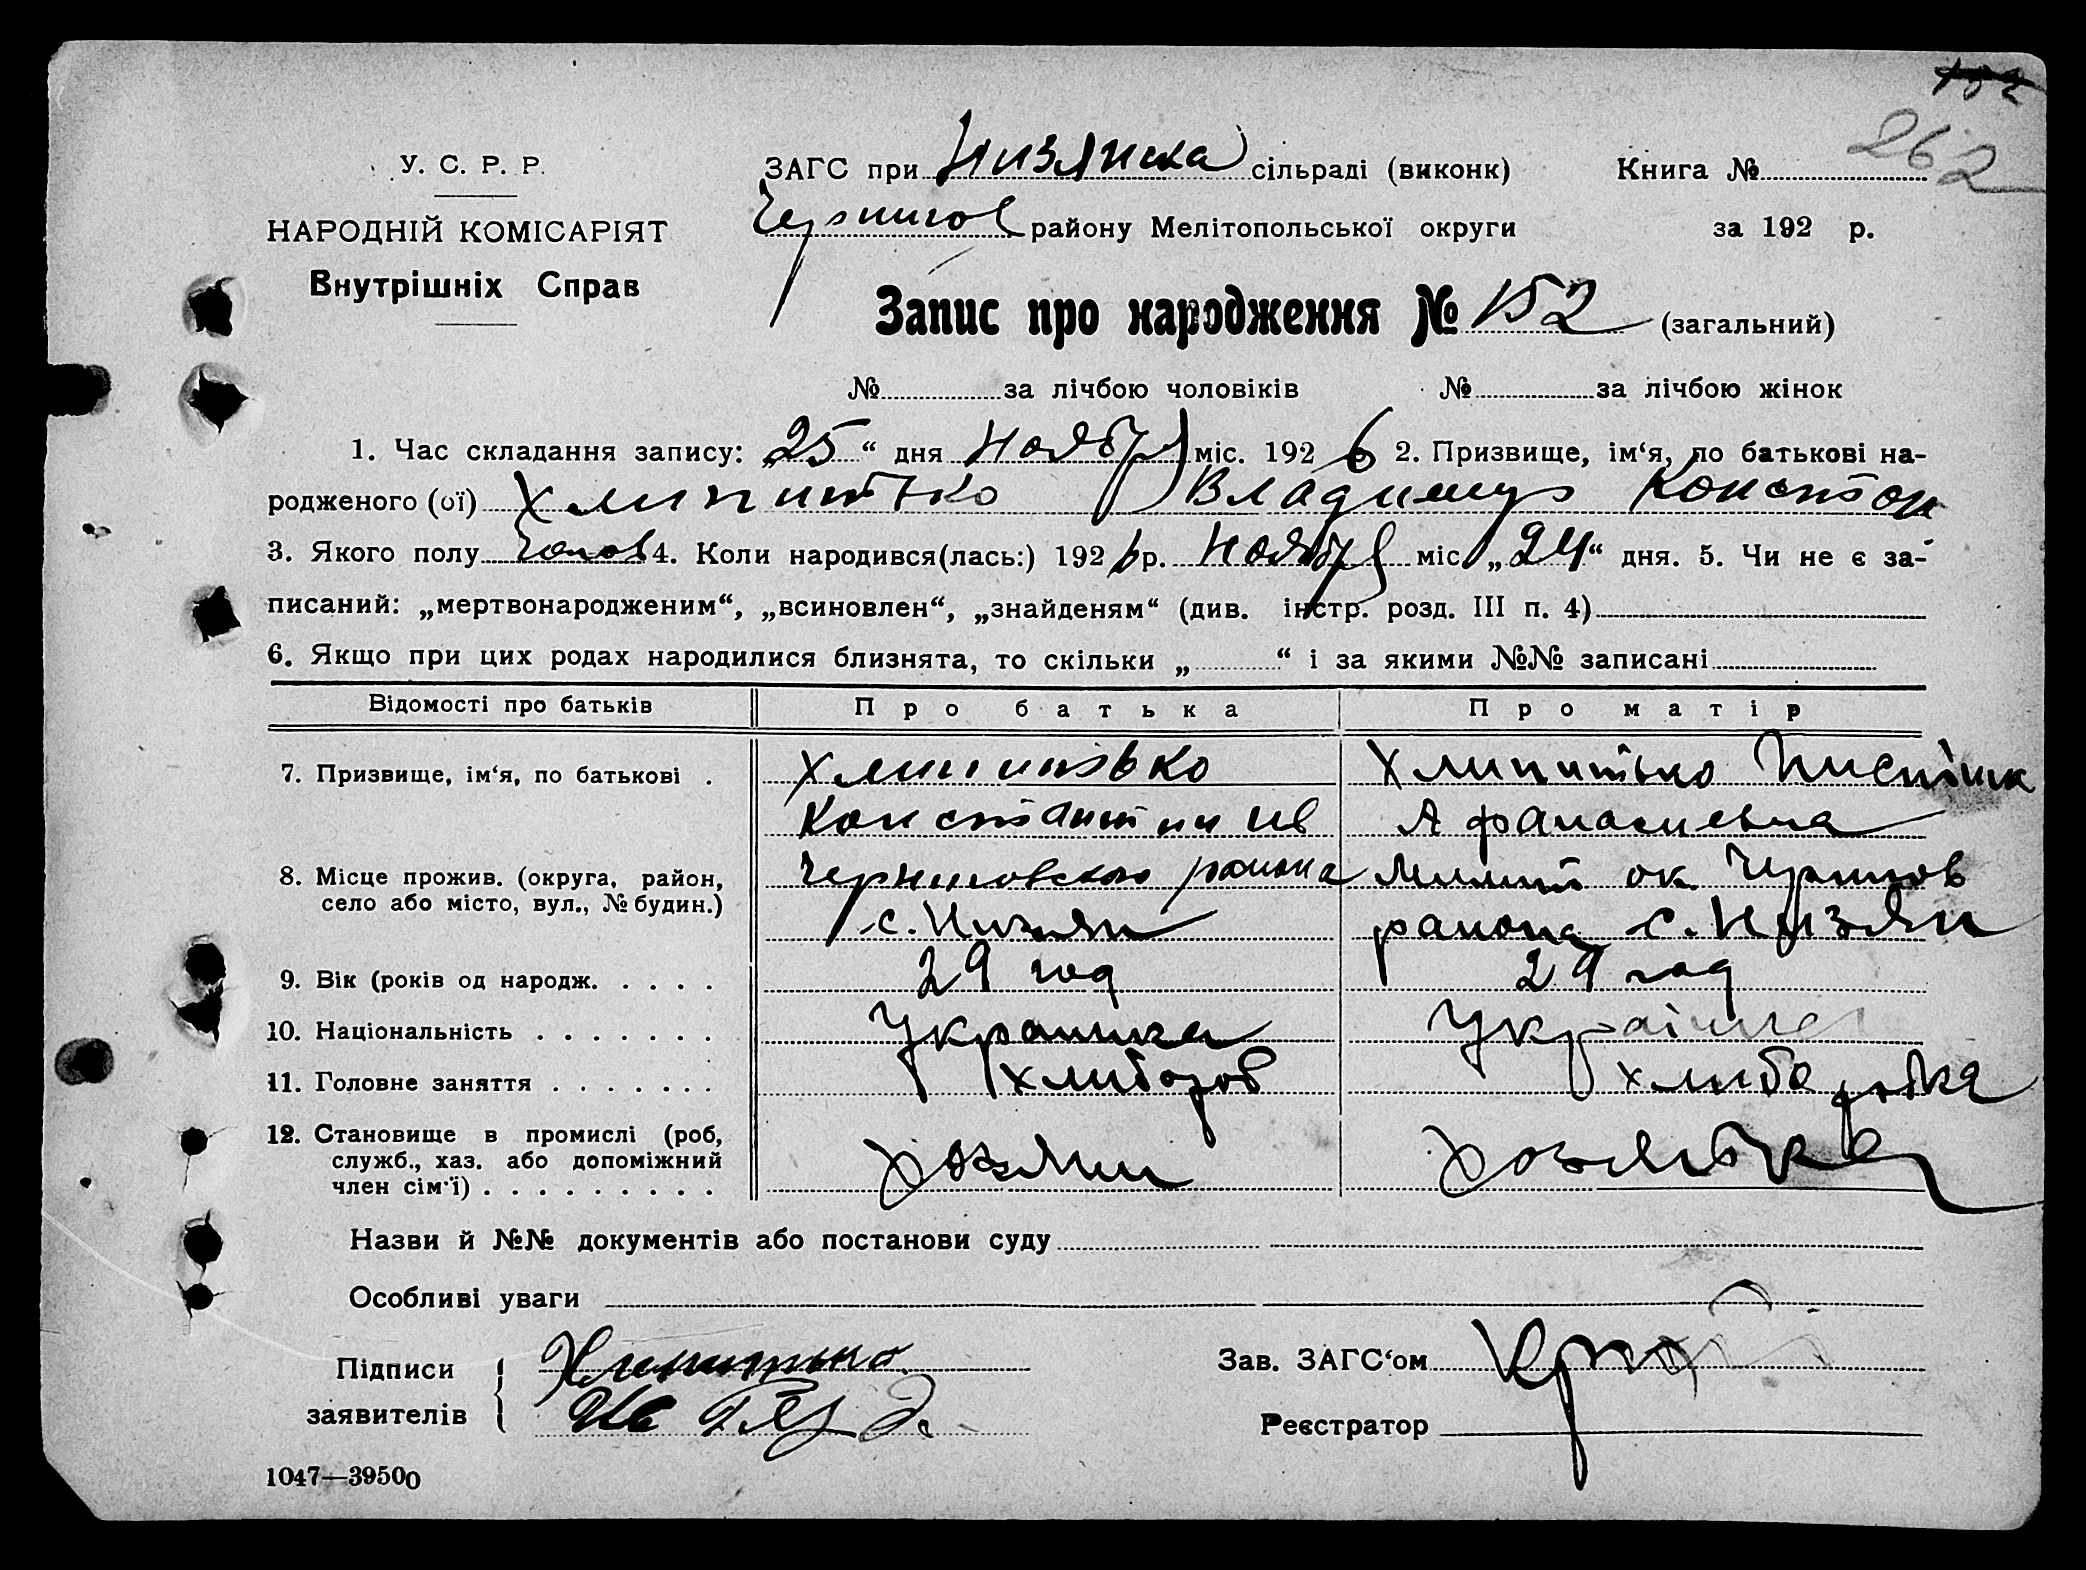 182
262
У. С. Р. Р.
ЗАГС при Низянска сільраді (виконк) Книга №
НАРОДНІЙ КОМІСАРІЯТ
Чернигов району Мелітопольської округи за 192 р.
Внутрішніх Справ
Запис про народження № 152 (загальний)
№ за лічбою чоловіків № за лічбою жінок
1. Час складання запису: „25“ дня Ноября міс. 1926 2. Призвище, ім‘я, по батькові на-
родженого (ої) Хлипитько Владимир Констан
3. Якого полу 4. Коли народився(лась:) 1926 р. Ноября міс „24“ дня. 5. Чи не є за-
писаний: „мертвонародженим“, „всиновлен“, „знайденям“ (див. інстр. розд. III п. 4)
6. Якщо при цих родах народилися близнята, то скільки „ “ і за якими №№ записані
Відомості про батьків Про батька Про матір
7. Призвище, ім‘я, по батькові . Хлипитько Хлипитько
Константин Ив Афанасиевна
8. Місце прожив. (округа, район, Черниговского района Мелит ок. Чернигов
село або місто, вул., № будин.) с. Низяни района с. Низян
9. Вік (років од народж. . . . . 29 год 29 год
10. Національність . . . . . . . Украинец Украін
11. Головне заняття . . . . . . . хлибороб хлиборобка
12. Становище в промислі (роб,
служб., хаз. або допоміжний хозяин хозяйка
член сім‘ї) . . . . . . . . .
Назви й №№ документів або постанови суду
Особливі уваги
Підписи Хлипитько Зав. ЗАГС‘ом
заявителів Реєстратор
1047—39500